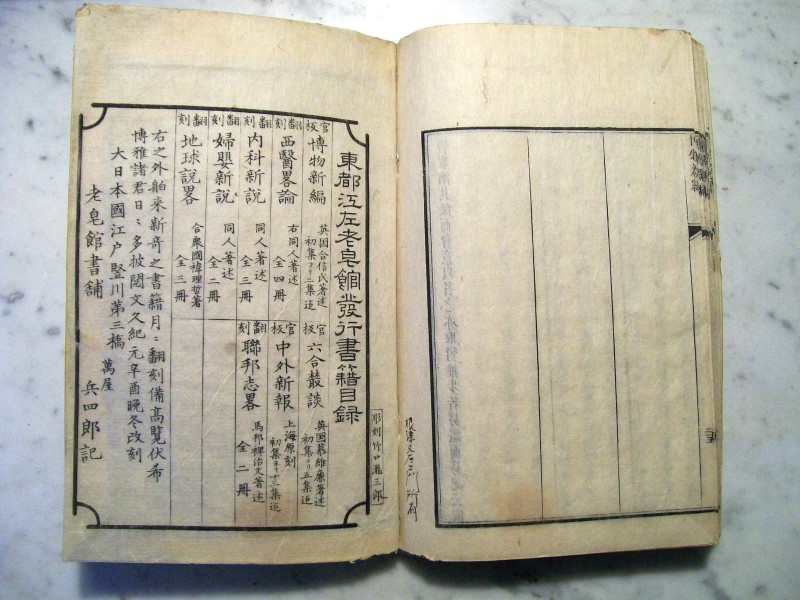 東都江左老皂館發行書籍目録
彫刻竹口瀧三郎
官板
博物新編
英国合信氏著述
初集ヨリ三集迄
官板
六合叢談
英国慕維廉著述
初集ヨリ五集迄
翻刻
西醫畧論
右同人著述
全四冊
官板
中外新報
上海原刻
初集ヨリ十三集迄
翻刻
内科新説
同人著述
全三冊
翻刻
聯邦志畧
馬邦裨治文著述
全二冊
翻刻
婦嬰新説
同人著述
全二冊
翻刻
地球説畧
合衆國褘理哲著
全三冊
右之外舶来新奇之書籍月〻翻刻備高覧伏希
博雅諸君日〻多披閲文久紀元辛酉晩冬改刻
大日本國江戸竪川第三橋 萬屋
老皂館書舗 兵四郎記